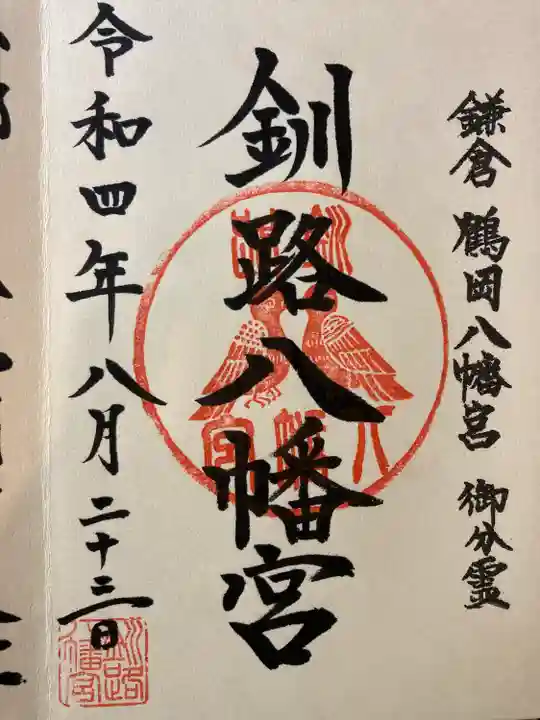 鎌倉 鶴岡八幡宮 御分霊
釧路八幡宮
令和四年八月二十三日
釧路
八幡宮